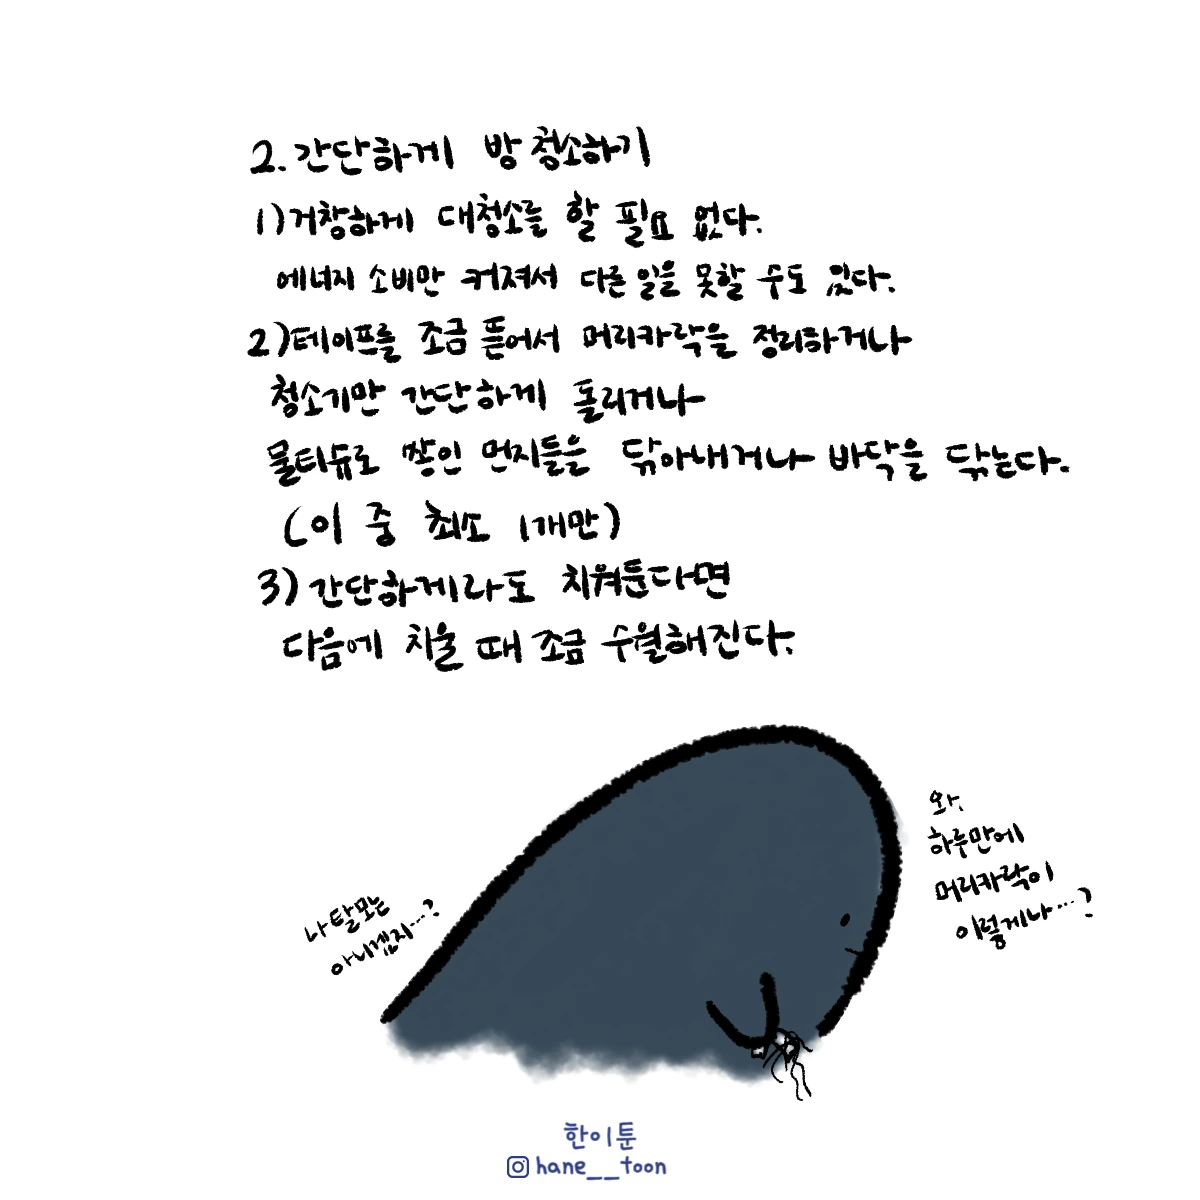 2. 간단하게 방 청소하기
1) 거창하게 대청소를 할 필요 없다.
에너지 소비만 커져서 다른 일을 못할 수도 있다.
2) 테이프를 조금 뜯어서 머리카락을 정리하거나
청소기만 간단하게 돌리거나
물티슈로 쌓인 먼지들을 닦아내거나 바닥을 닦는다.
(이 중 최소 1개만)
3) 간단하게라도 치워둔다면
다음에 치울 때 조금 수월해진다.
와.
하루만에
머리카락이
이렇게나...?
나 탈모는
아니겠지...?
한이툰
hane__toon